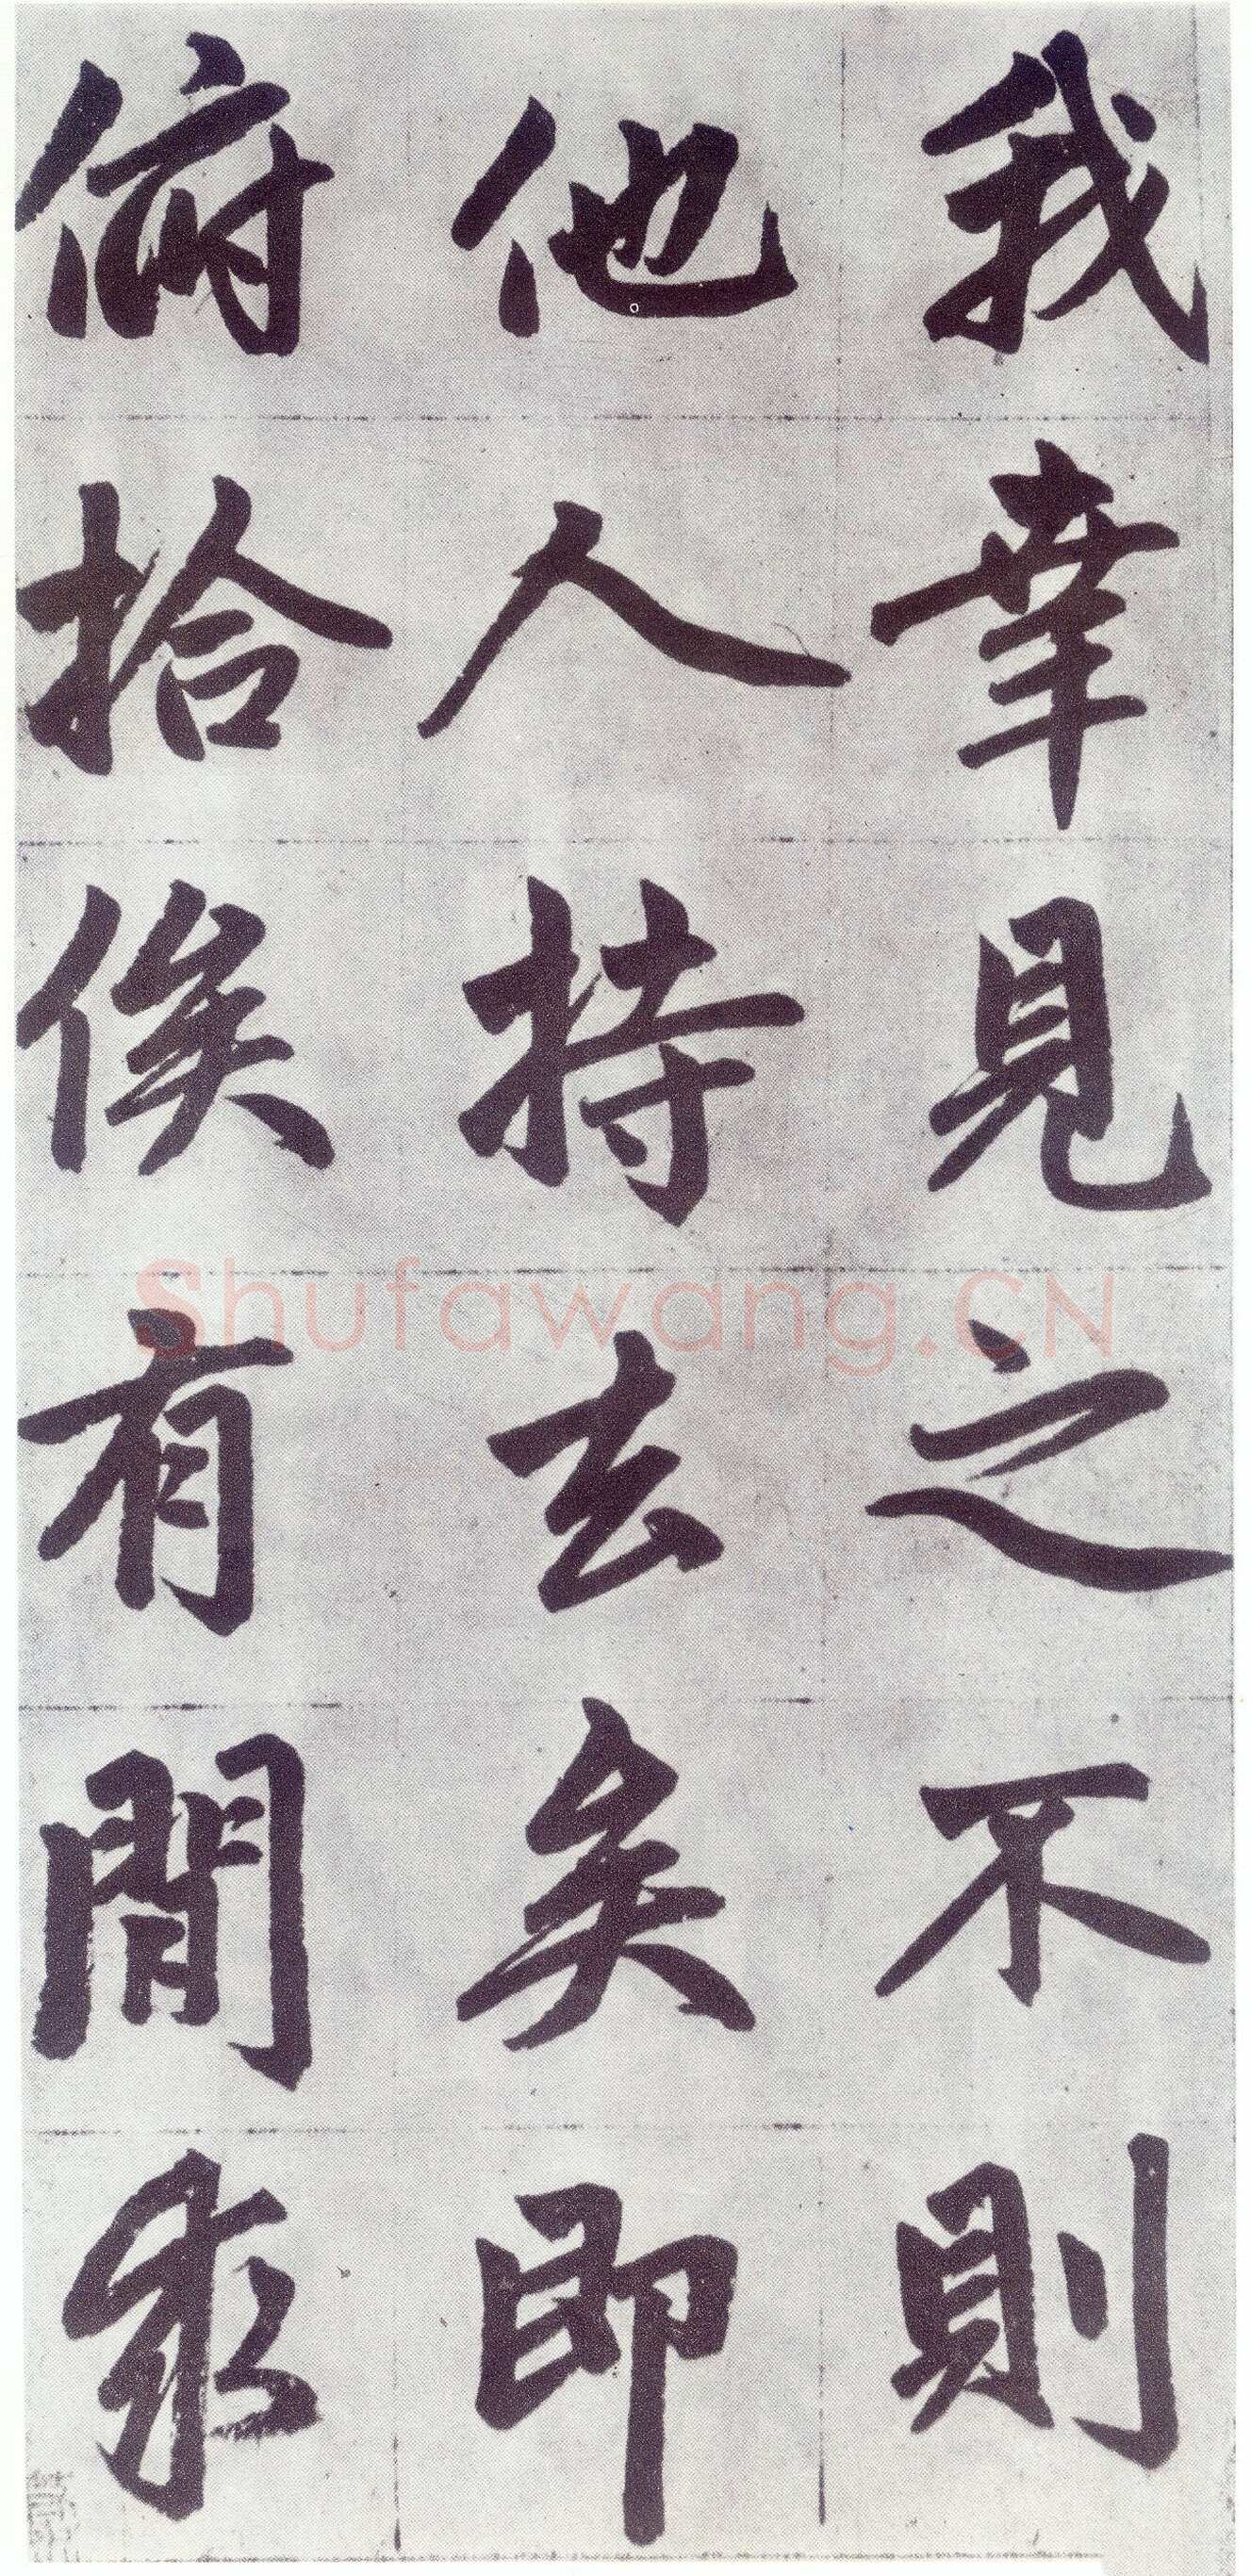 我幸見之不則
他人持去矣即
俯拾俟有間乘
Shufawang.CN